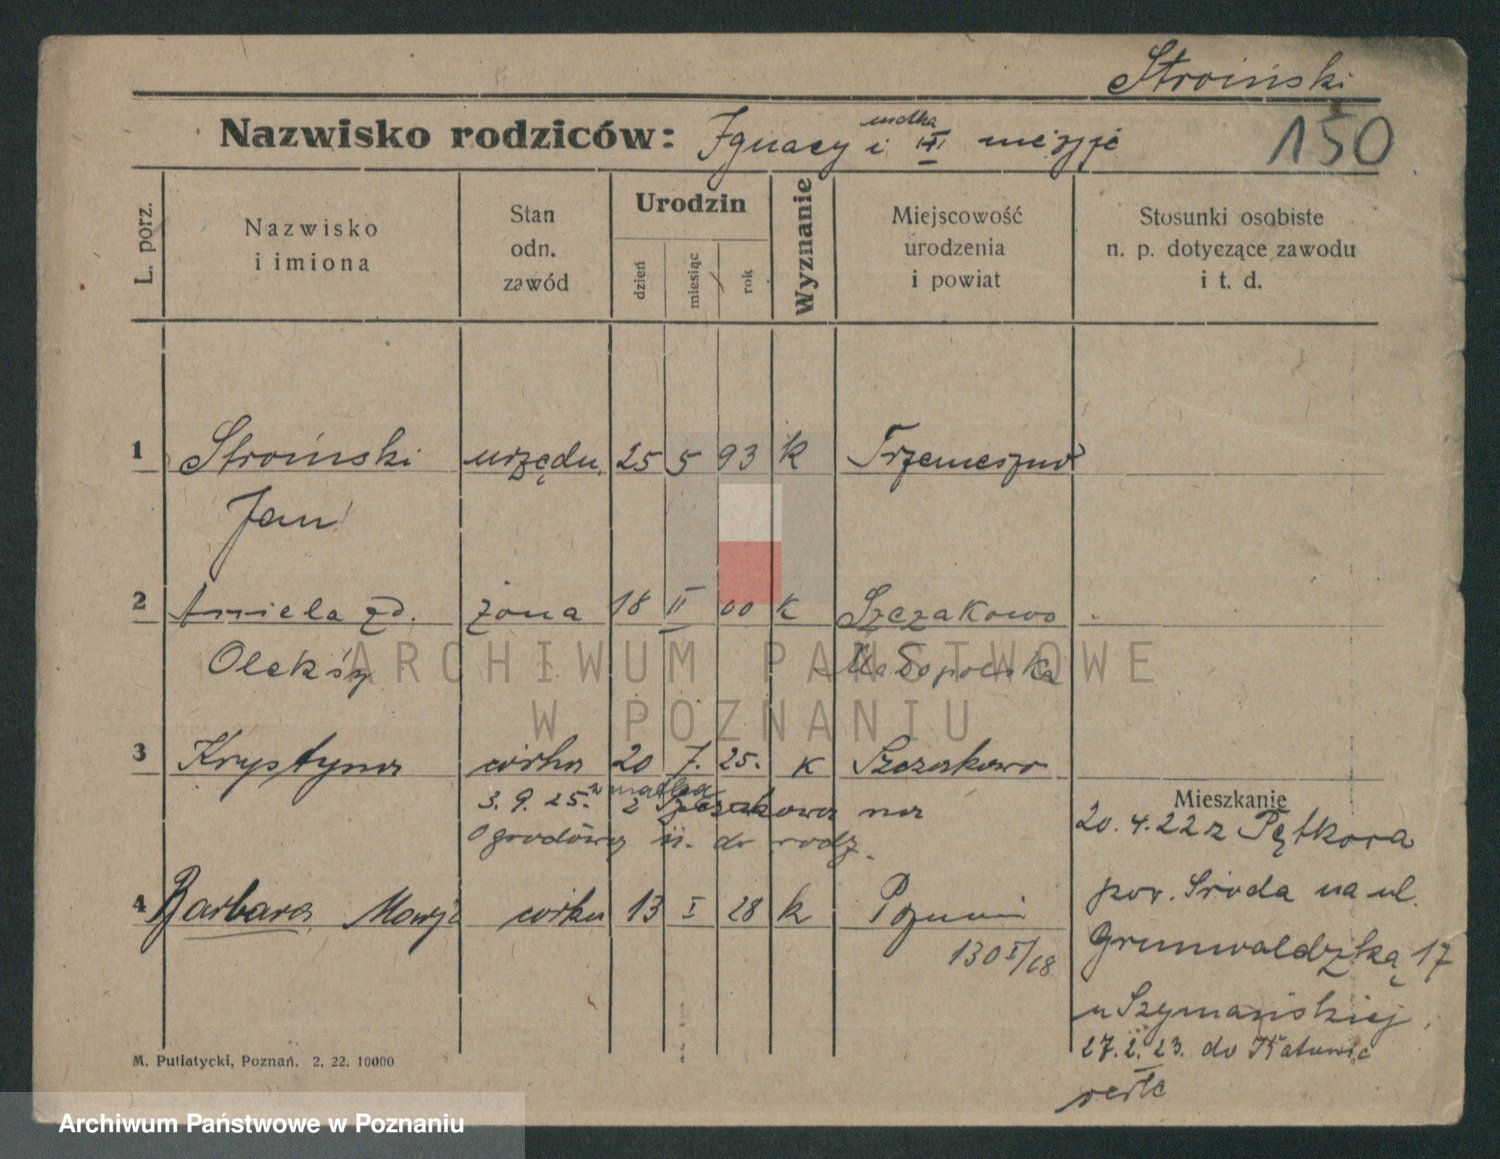 Stroiński
Nazwisko rodziców: Ignacy i matka nie żyje
150
L. porz.
Nazwisko
i imiona
Stan
odn.
zawód
Urodzin
dzień
miesiąc
rok
Wyznanie
Miejscowość
urodzenia
i powiat
Stosunki osobiste
n. p. dotyczące zawodu
i t. d.
1 Stroiński urzędn. 25 5 93 k Trzemeszno
Jan
2 Aniela zd. żona 18 II 00 k Szczakowo
Oleksy Małopolska
3 Krystyna córka 20 7. 25. k Szczakowo
3. 9. 25. z matką z Szczakowa na
Ogrodową 11. do rodz.
4 Barbara Marja córka 13 I 28 k Poznań
130 I/28
Mieszkanie
20. 4. 22 z Pętkowa
pow. Środa na ul.
Grunwaldzką 17
u Szymańskiej
27. 2. 23. do Katowic
ARCHIWUM PAŃSTWOWE
W POZNANIU
M. Putiatycki, Poznań. 2. 22. 10000
Archiwum Państwowe w Poznaniu